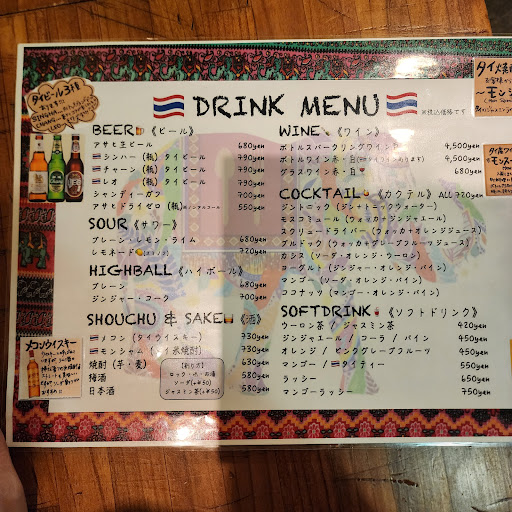 タイビール3種
DRINK MENU
※税込価格です
BEER 《ビール》
アサヒ生ビール 680yen
シンハー (瓶) タイビール 790yen
チャーン (瓶) タイビール 790yen
レオ (瓶) タイビール 790yen
シャンディーガフ 700yen
アサヒドライゼロ (瓶)※ノンアルコール 550yen
SOUR 《サワー》
プレーン・レモン・ライム 680yen
レモネード 720yen
HIGHBALL 《ハイボール》
プレーン 680yen
ジンジャー・コーク 700yen
SHOUCHU & SAKE 《酒》
メコン (タイウイスキー) 730yen
モンシャム 730yen
焼酎 (芋・麦) 630yen
梅酒 580yen
日本酒 580yen
《割り方》
ロック・水・お湯
ソーダ(+¥50)
ジャスミン茶(+¥50)
メコンウイスキー
WINE 《ワイン》
ボトルスパークリングワイン 4,500yen
ボトルワイン 赤・白 4,500yen
グラスワイン 赤・白 680yen
COCKTAIL 《カクテル》 ALL720yen
ジントニック (ジン・トニックウォーター)
モスコミュール (ウォッカ・ジンジャエール)
スクリュードライバー (ウォッカ・オレンジジュース)
ブルドック (ウォッカ・グレープフルーツジュース)
カシス (ソーダ・オレンジ・ウーロン)
ヨーグルト (ジンジャー・オレンジ・パイン)
マンゴー (ソーダ・オレンジ・パイン)
ココナッツ (マンゴー・オレンジ・パイン)
SOFTDRINK 《ソフトドリンク》
ウーロン茶 / ジャスミン茶 420yen
ジンジャエール / コーラ / パイン 450yen
オレンジ / ピンクグレープフルーツ 450yen
マンゴー / タイティー 550yen
ラッシー 650yen
マンゴーラッシー 750yen
タイ焼